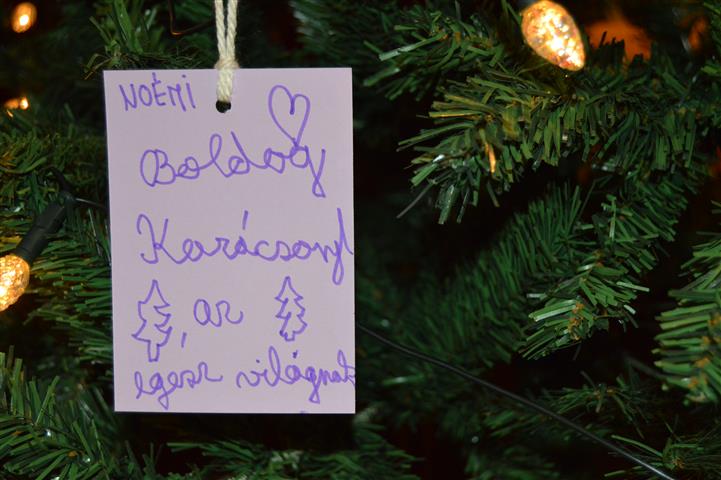 NOÉMI
Boldog
Karácsonyt
az
égesz világnak